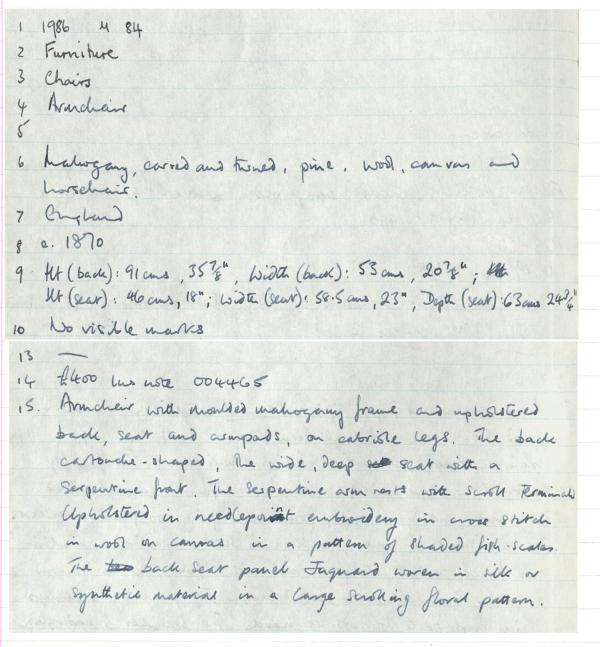 1 1986 M 84
2 Furniture
3 Chairs
4 Armchair
5
6 Mahogany, carved and turned, pine, wool, canvas and
horsehair.
7 England
8 c. 1870
9 Ht (back): 91 cms, 35 7/8", Width (back): 53 cms, 20 7/8";
Ht (seat): 46 cms, 18"; Width (seat): 58.5 cms, 23", Depth (seat): 63 cms 24 3/4"
10 No visible marks
13 —
14 £400 Ins note 004465
15. Armchair with moulded mahogany frame and upholstered
back, seat and armpads, on cabriole legs. The back
cartouche-shaped, the wide, deep seat with a
serpentine front. The serpentine arm rests with scroll terminals
Upholstered in needlepoint embroidery in cross stitch
in wool on canvas in a pattern of shaded fish-scales.
The back seat panel Jaquard woven in silk or
synthetic material in a large scrolling floral pattern.